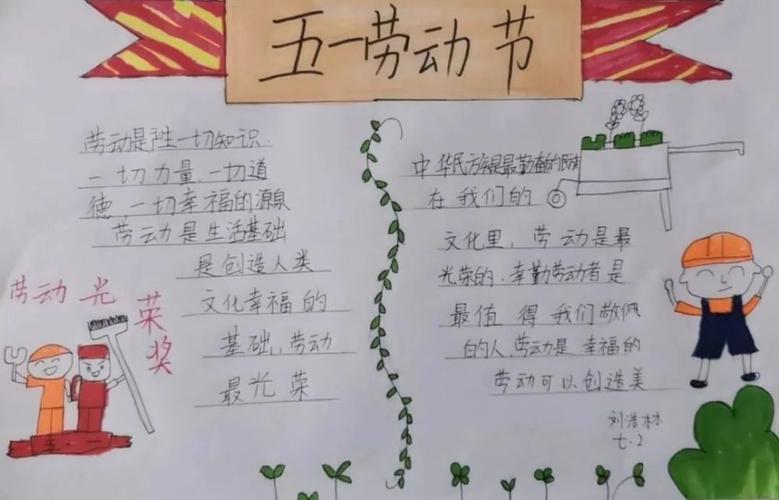 五一劳动节
劳动是产生一切知识.
一切力量,一切道
德,一切幸福的源泉
劳动是生活基础
是创造人类
文化幸福的
基础,劳动
最光荣
劳动光荣奖
中华民族是最勤奋的民族
在我们的
文化里,劳动是最
光荣的.辛勤劳动者是
最值得我们敬佩
的人,劳动是幸福的
劳动可以创造美
刘浩林
七.2